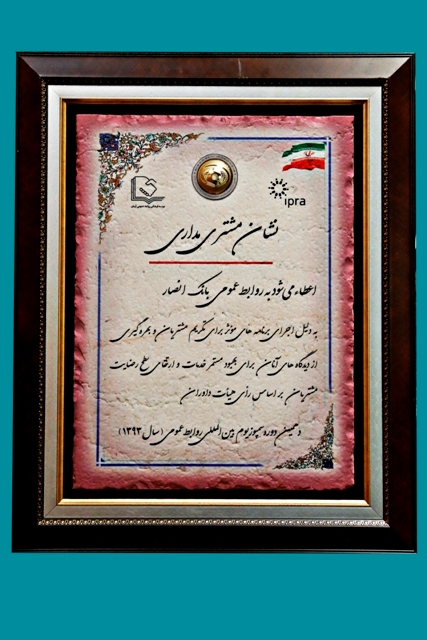 ipra
نشان مشتری مداری
اعطاء می شود به روابط عمومی بانک انصار
به دلیل اجرای برنامه های مؤثر برای تکریم مشتریان و بهره گیری
از دیدگاه های آنان برای بهبود مستمر خدمات و ارتقای سطح رضایت
مشتریان بر اساس رأی هیأت داوران
دهمین دوره سمپوزیوم بین المللی روابط عمومی (سال ۱۳۹۲)